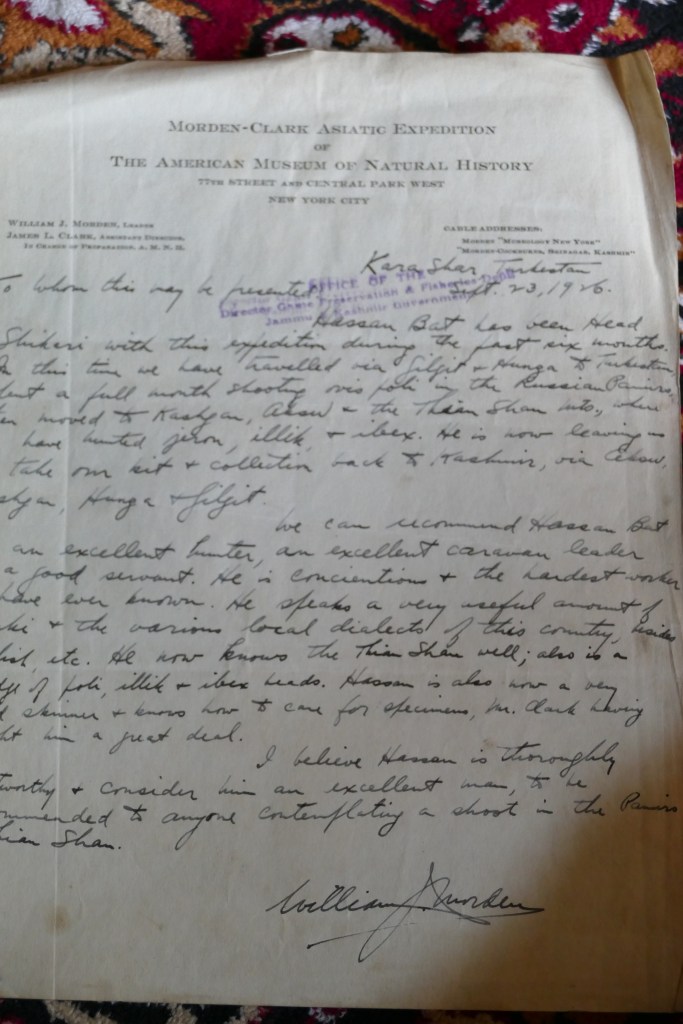 MORDEN-CLARK ASIATIC EXPEDITION
OF
THE AMERICAN MUSEUM OF NATURAL HISTORY
77TH STREET AND CENTRAL PARK WEST
NEW YORK CITY
WILLIAM J. MORDEN, LEADER
JAMES L. CLARK, ASSISTANT DIRECTOR,
IN CHARGE OF PREPARATION, A. M. N. H.
CABLE ADDRESSES:
MORDEN "MURROLOUS NEW YORK"
"MORDEN-COCKBURNS, SRINAGAR, KASHMIR"
Kara Shar, Turkestan
Sept. 23, 1926.
OFFICE OF THE
Director, Game Preservation & Fisheries
Jammu & Kashmir Government
To whom this may be presented
Hassan Bat has been Head
Shikari with this expedition during the past six months.
In this time we have travelled via Gilgit & Hunza to Turkestan
a full month shooting ovis poli in the Russian Pamirs,
moved to Kashgar, Aksu & the Thian Shan mts., where
have hunted jeron, illik, & ibex. He is now leaving us
take our kit & collection back to Kashmir, via Aksu,
shgar, Hunza & Gilgit.
We can recommend Hassan Bat
an excellent hunter, an excellent caravan leader
a good servant. He is concientious & the hardest worker
have ever known. He speaks a very useful amount of
ki & the various local dialects of this country, besides
lish, etc. He now knows the Thian Shan well; also is a
dge of poli, illik & ibex heads. Hassan is also now a very
d skinner & knows how to care for specimens, Mr. Clark having
ght him a great deal.
I believe Hassan is thoroughly
tworthy & consider him an excellent man, to be
ommended to anyone contemplating a shoot in the Pamirs
hian Shan.
William J. Morden